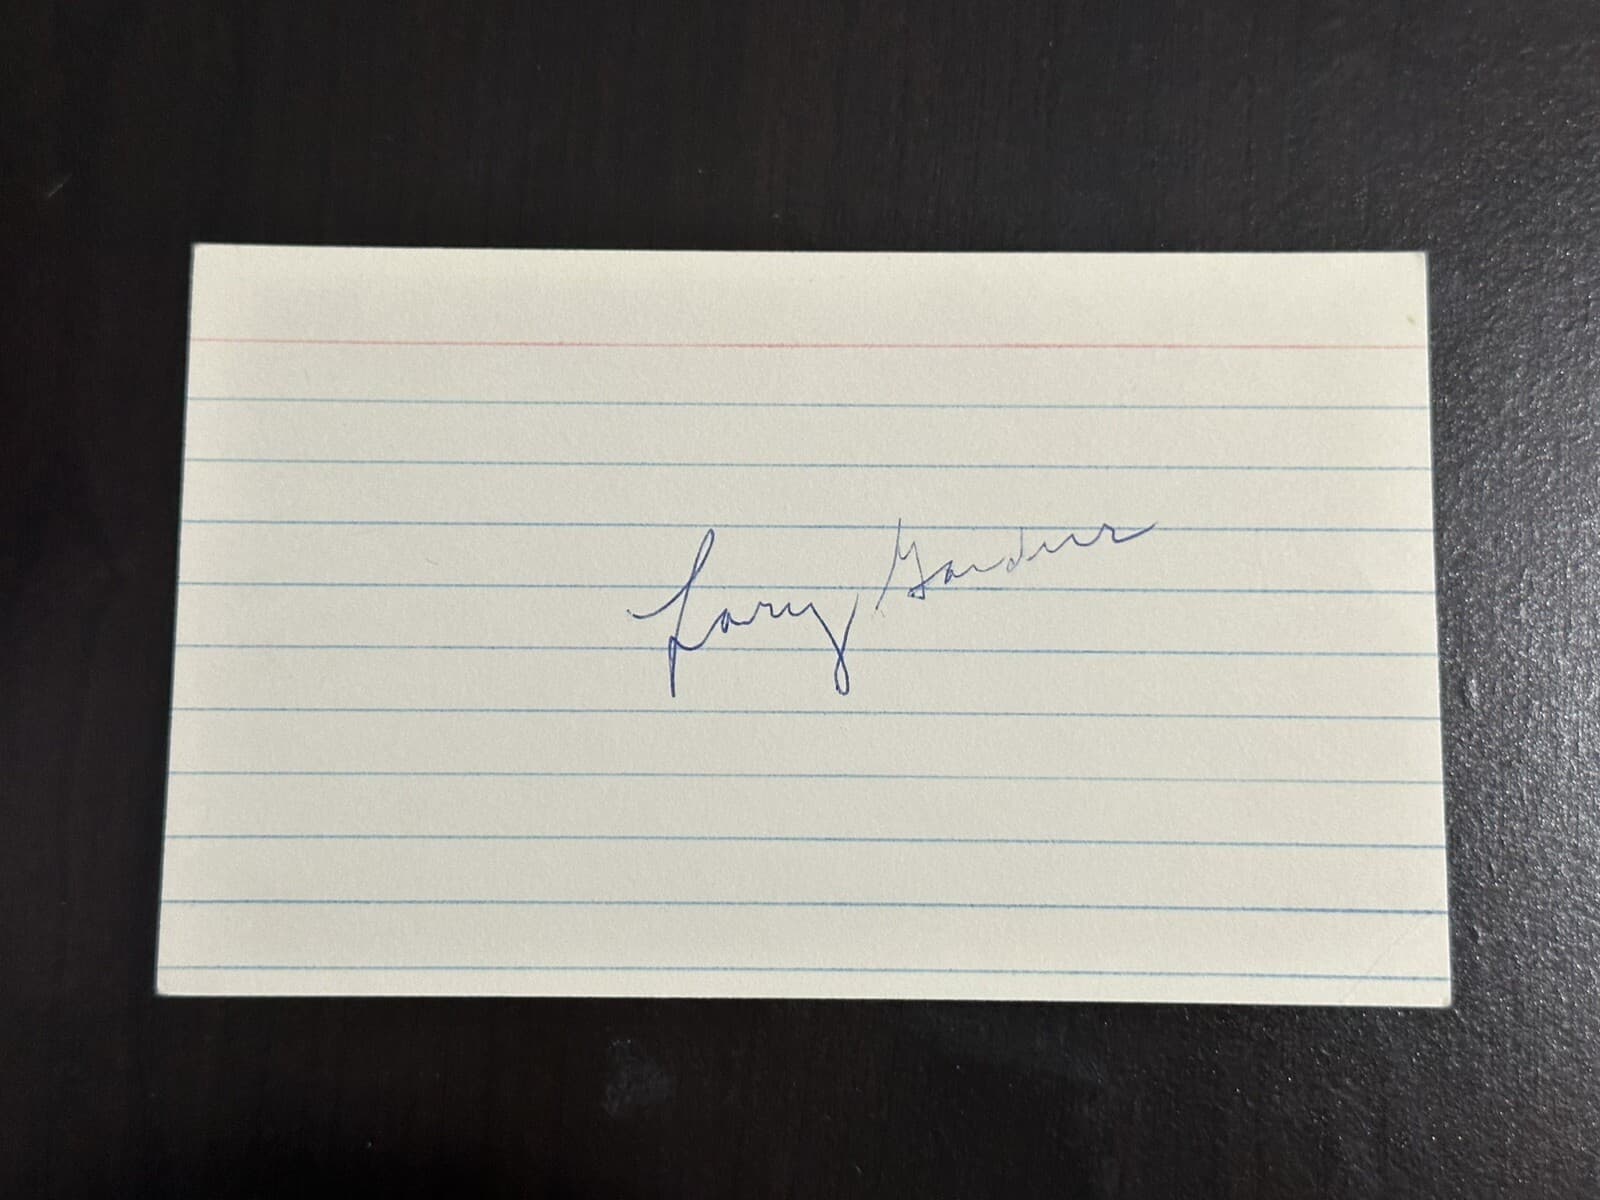 Larry Gardner